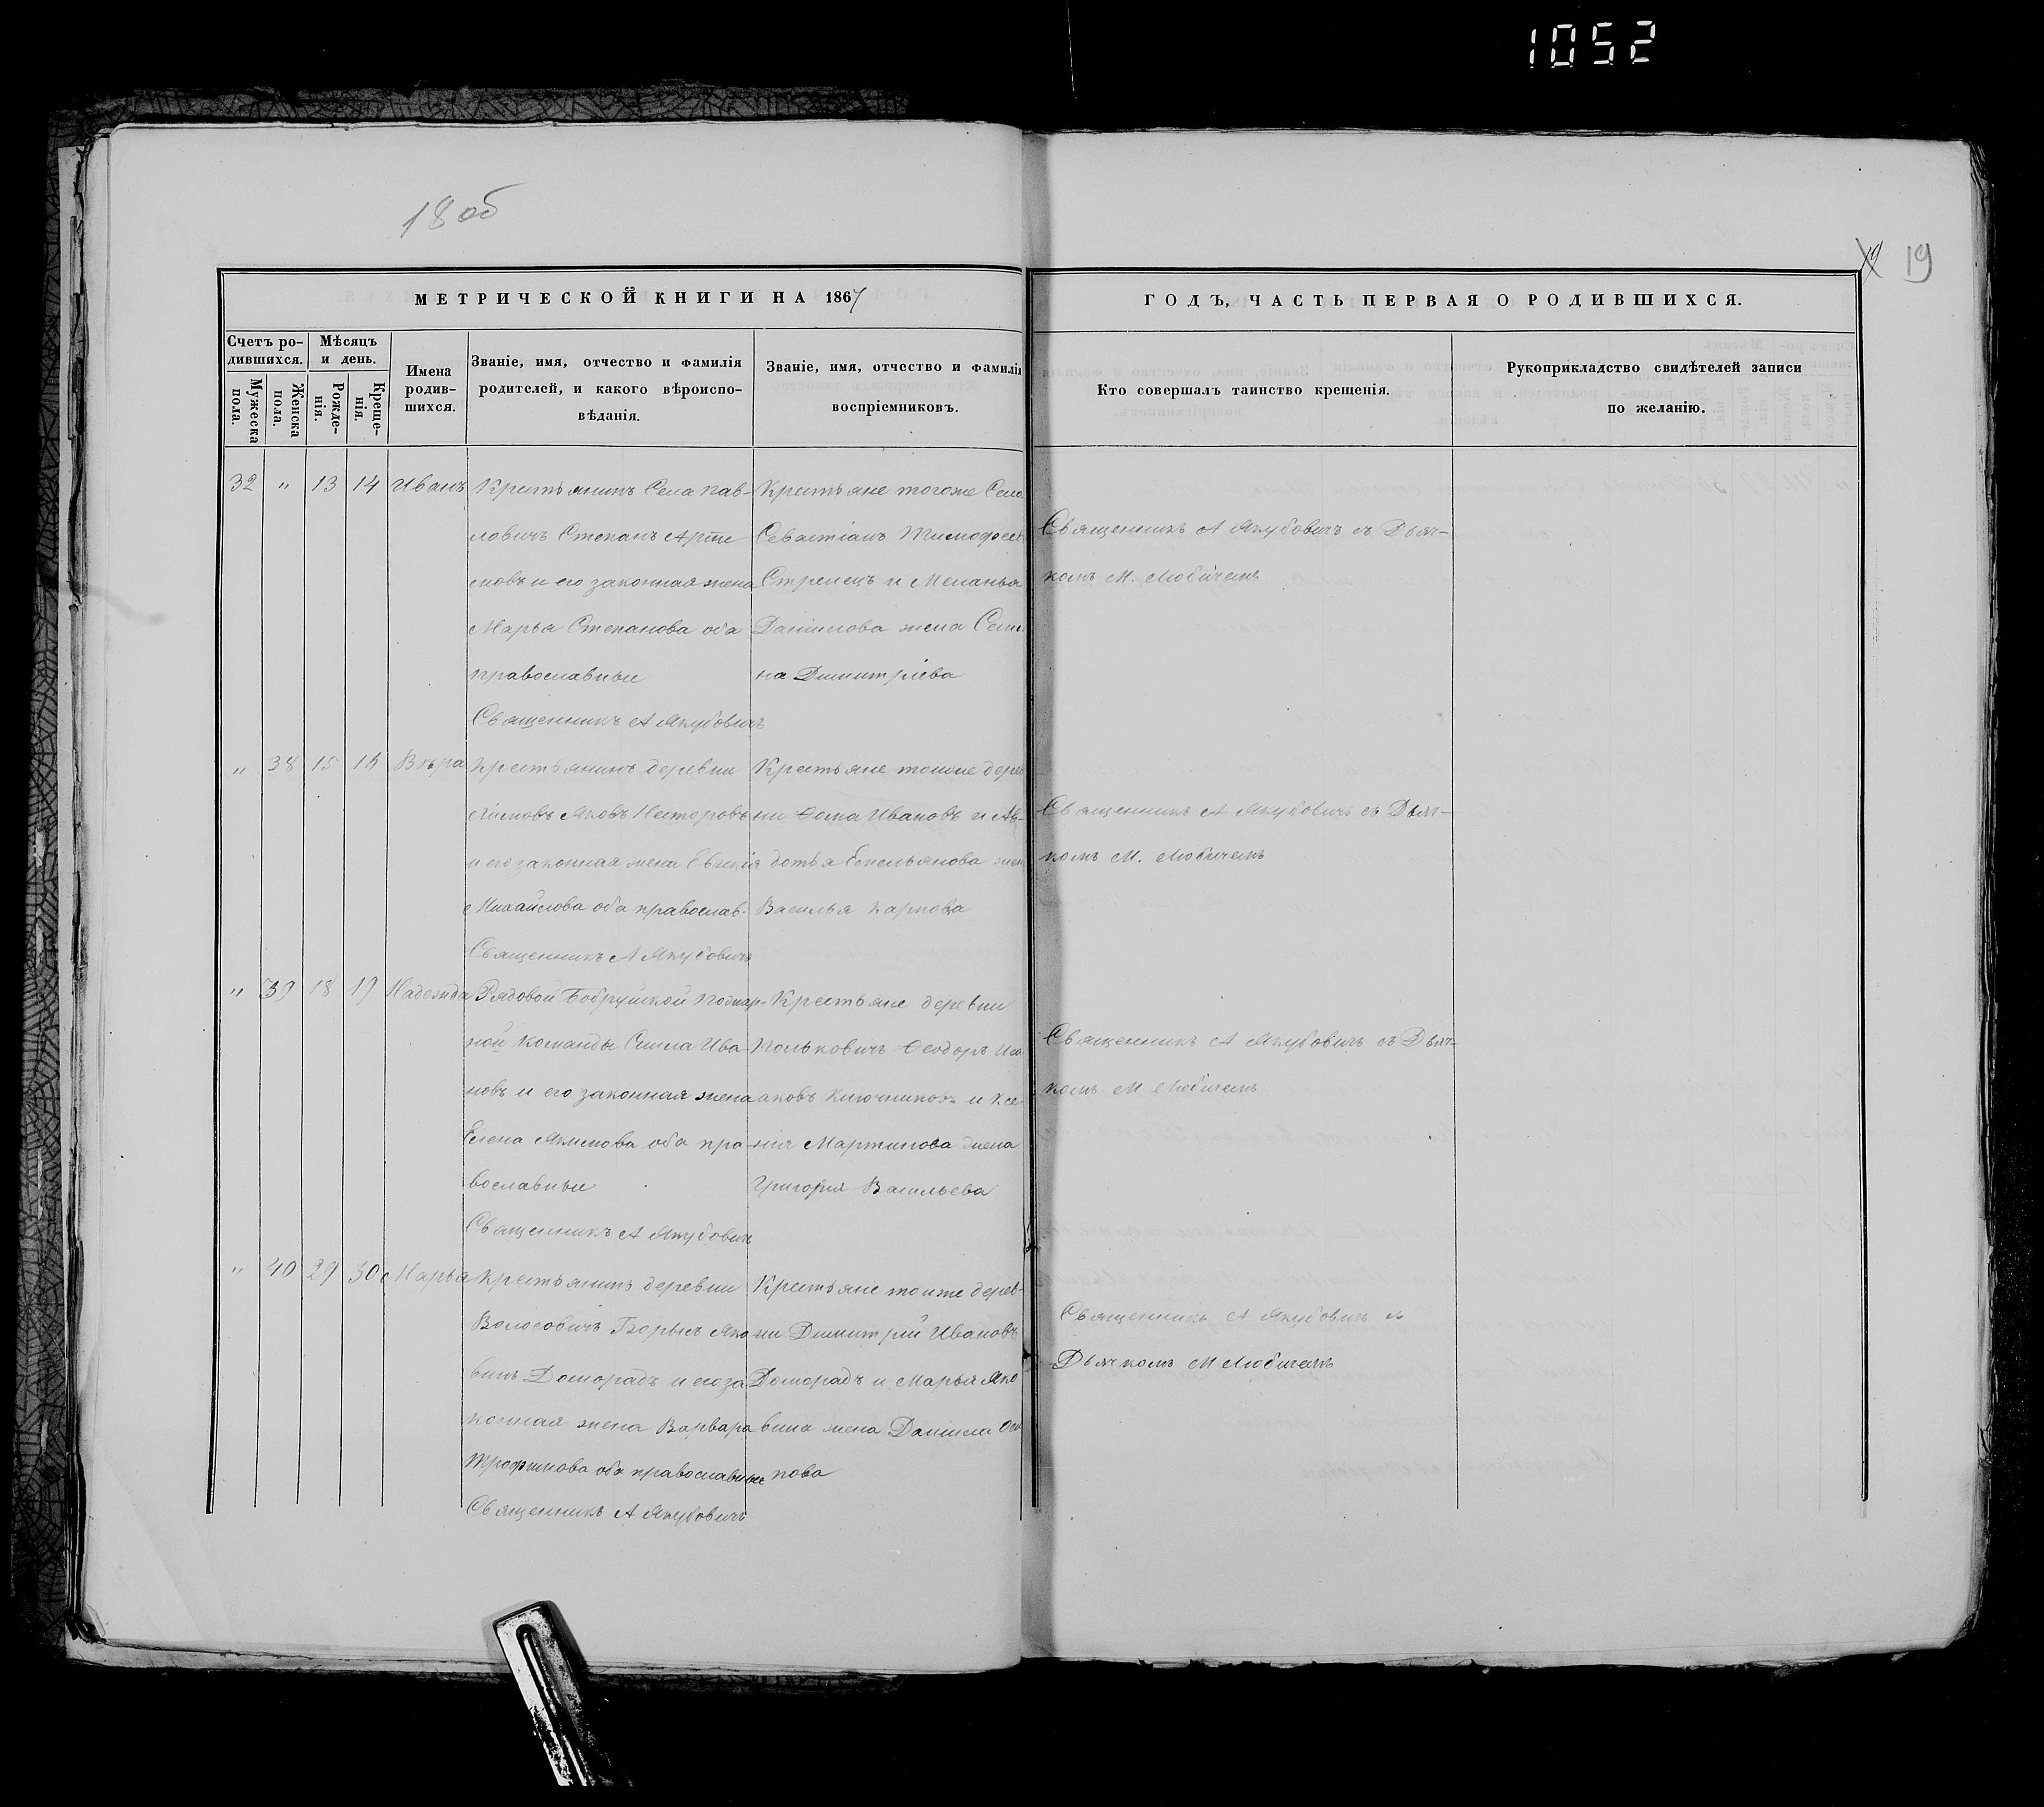 1052
18 об
19
МЕТРИЧЕСКОЙ КНИГИ НА 1867
ГОДЪ, ЧАСТЬ ПЕРВАЯ О РОДИВШИХСЯ.
Счетъ ро-
дившихся.
Мужеска
пола.
Женска
пола.
Мѣсяцъ
и день.
Рожде-
нія.
Креще-
нія.
Имена
родив-
шихся.
Званіе, имя, отчество и фамилія
родителей, и какого вѣроиспо-
вѣданія.
Званіе, имя, отчество и фамилія
воспріемниковъ.
Кто совершалъ таинство крещенія.
Рукоприкладство свидѣтелей записи
по желанію.
32 " 13 14 Иванъ
Крестьянинъ Села Пав-
ловичъ Степанъ Арте
мовъ и его законная жена
Марья Степанова оба
православные
Священникъ А Якубовичъ
Крестьяне тогоже Села
Севастіанъ Тимофеевъ
Стрелецъ и Меланья
Даніилова жена Семе
на Димитріева
Священникъ А Якубовичъ съ Дьяч-
комъ М. Любичемъ
" 38 15 16 Вѣра
Крестьянинъ деревни
Яковъ Несторовъ
и его законная жена Евгенія
Михайлова оба православ.
Священникъ А Якубовичъ
Крестьяне тойже дерев
ни Ѳома Ивановъ и Ав-
дотья Емельянова жен
Василья Карпова
Священникъ А Якубовичъ съ Дьяч-
комъ М. Любичемъ
" 39 18 19 Надежда
Рядовой Бобруйской Пожар-
ной Команды Сила Ива
новъ и его законная жена
Елена Якимова оба пра-
вославные
Священникъ А Якубовичъ
Крестьяне деревни
Польковичъ Ѳеодоръ Иса
аковъ Ключникъ и Ксе
нія Мартинова жена
Григорія Васильева
Священникъ А Якубовичъ съ Дьяч-
комъ М Любичемъ
" 40 29 30 Марья
Крестьянинъ деревни
Волосовичъ Борисъ Яко
винъ Доморадъ и его за
конная жена Варвара
Трофимова оба православные
Священникъ А Якубовичъ
Крестьяне тоиже дерев-
ни Димитрій Ивановъ
Доморадъ и Марья Яко
вина жена Даніила Оси
пова
Священникъ А Якубовичъ съ
Дьячкомъ М Любичемъ